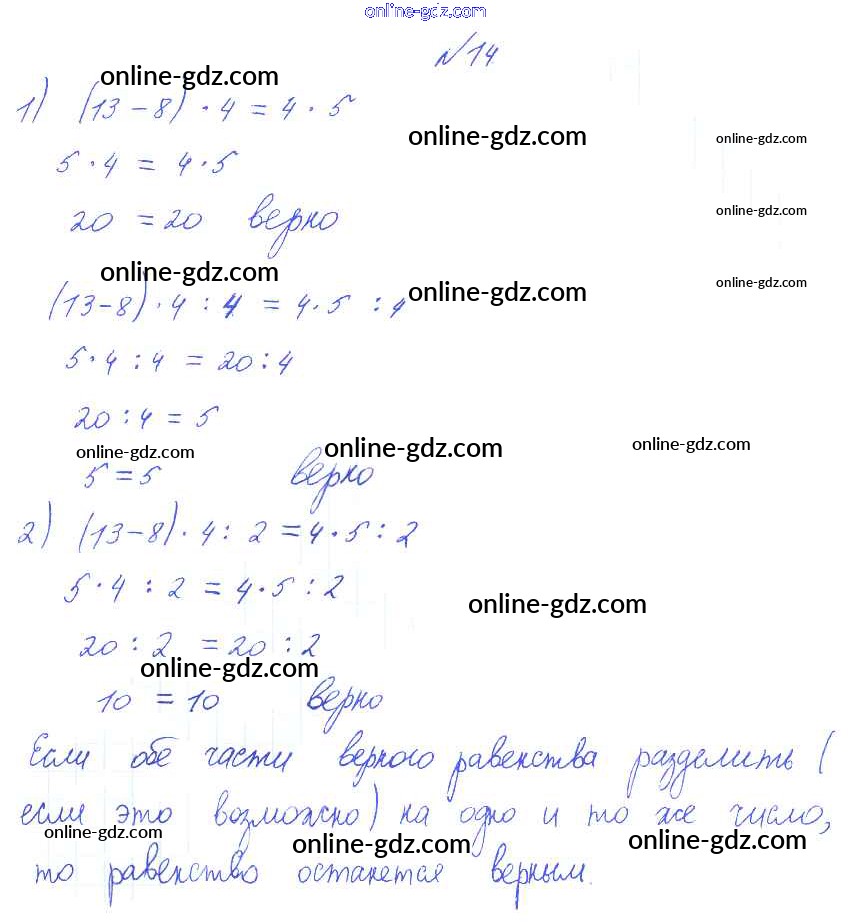 online-gdz.com
№14
online-gdz.com
1) (13-8)·4=4·5
online-gdz.com
online-gdz.com
5·4=4·5
20=20 верно
online-gdz.com
online-gdz.com
online-gdz.com
online-gdz.com
(13-8)·4:4=4·5:4
5·4:4=20:4
20:4=5
online-gdz.com
online-gdz.com
online-gdz.com
5=5 верно
2) (13-8)·4:2=4·5:2
5·4:2=4·5:2
online-gdz.com
20:2=20:2
online-gdz.com
10=10 верно
Если обе части верного равенства разделить (
если это возможно) на одно и то же число,
online-gdz.com
online-gdz.com
online-gdz.com
то равенство останется верным.